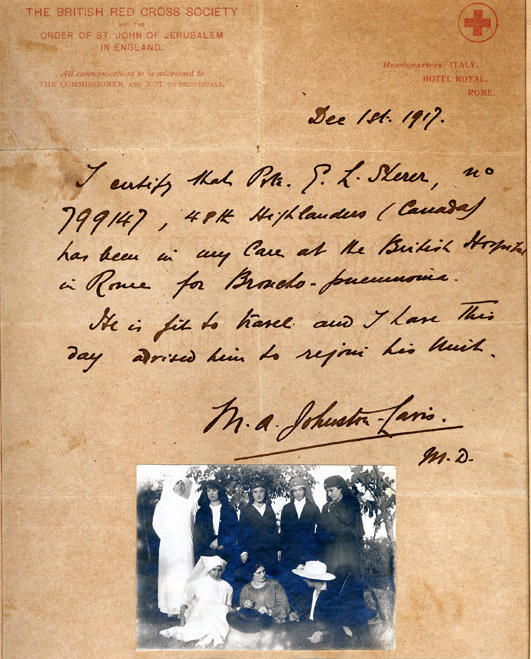 THE BRITISH RED CROSS SOCIETY
AND THE
ORDER OF ST. JOHN OF JERUSALEM
IN ENGLAND.
All communications to be addressed to
THE COMMISSIONER AND NOT TO INDIVIDUALS.
Headquarters: ITALY.
HOTEL ROYAL,
ROME
Dec 1st. 1917.
I certify that Pte. E. L. Sherer, no
799147, 48th Highlanders (Canada)
has been in my care at the British Hospital
in Rome for Broncho-pneumonia.
He is fit to travel and I have this
day advised him to rejoin his Unit.
M. A. Johnston-Lavis.
M.D.